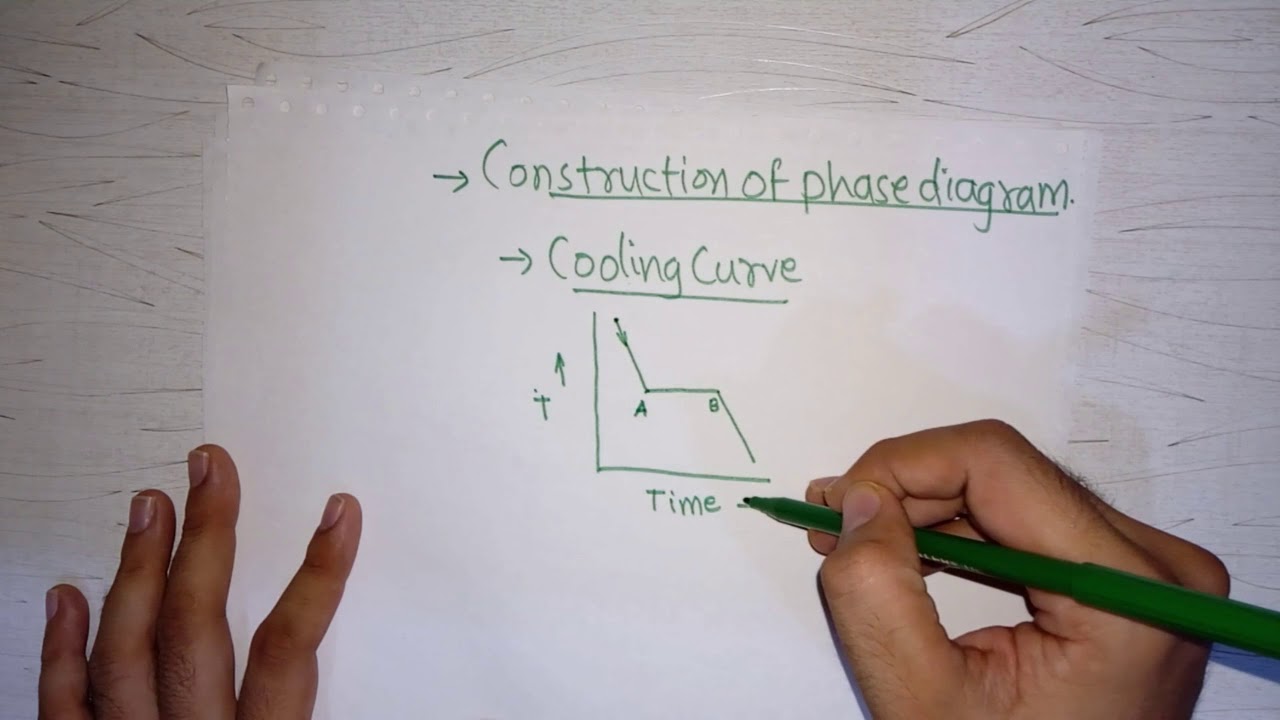 → Construction of phase diagram.
→ Cooling Curve
↑
T
A
B
Time